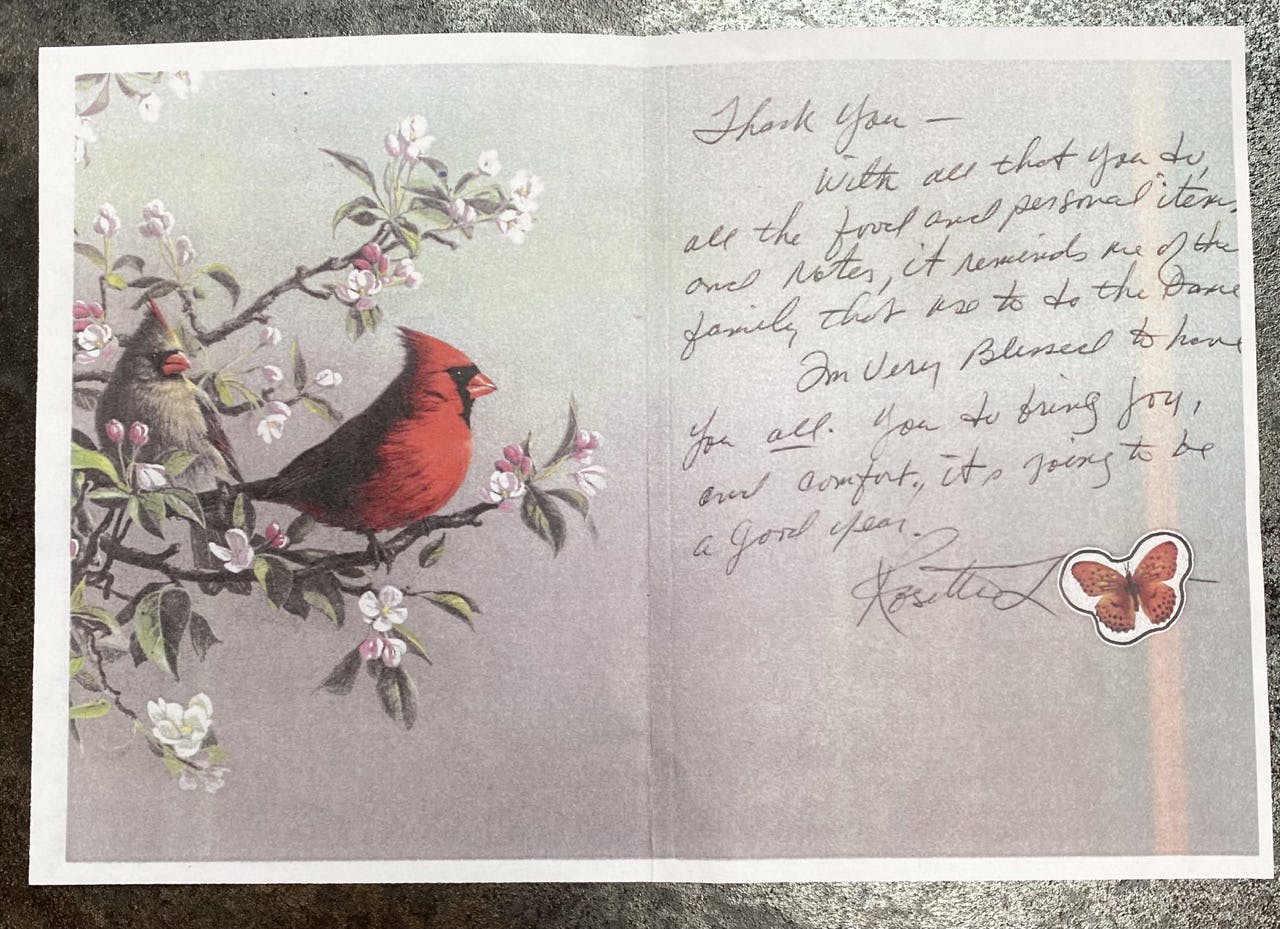 Thank You —
With all that you do,
all the food and personal items
and notes, it reminds me of the
family that use to do the same
Im Very Blessed to have
you all. You do bring Joy,
and comfort, it's going to be
a good year.
Rosetta L